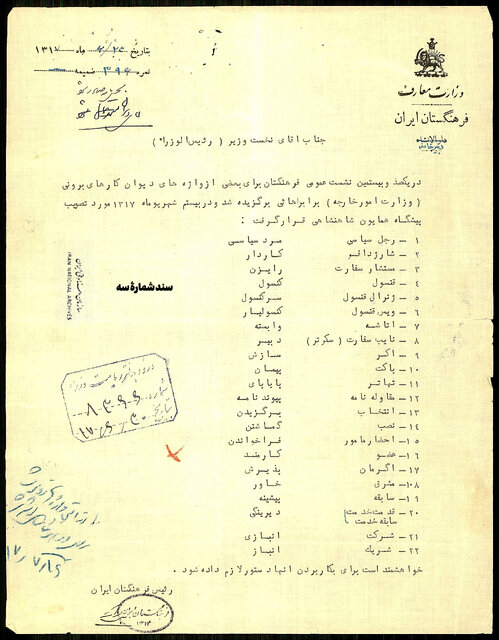 وزارت معارف
فرهنگستان ایران
دبیرخانه
بتاریخ ماه ۱۳۱۷
نمره ۳۹۶ ضمیمه
جناب آقای نخست وزیر ( رئیس الوزراء )
در یکصد و بیستمین نشست عمومی فرهنگستان برای بعضی از واژه های دیوان کارهای برونی
( وزارت امور خارجه ) برابرهائی برگزیده شد و در بیستم شهریور ماه ۱۳۱۷ مورد تصویب
پیشگاه همایون شاهنشاهی قرار گرفت :
۱ - رجل سیاسی مرد سیاسی
۲ - شارژدافر کاردار
۳ - مستشار سفارت رایزن
۴ - قنسول کنسول
۵ - ژنرال قنسول سرکنسول
۶ - ویس قنسول کنسولیار
۷ - آتاشه وابسته
۸ - نایب سفارت ( سکرتر ) دبیر
۹ - اکر سازش
۱۰ - پاکت پیمان
۱۱ - تهاتر پایاپای
۱۲ - مقاوله نامه پیوند نامه
۱۳ - انتخاب برگزیدن
۱۴ - نصب گماشتن
۱۵ - احضار مامور فراخواندن
۱۶ - عضو کارمند
۱۷ - اگرمان پذیرش
۱۸ - مشرق خاور
۱۹ - سابقه پیشینه
۲۰ - قدمت خدمت دیرینگی
سابقه خدمت
۲۱ - شرکت انبازی
۲۲ - شریک انباز
خواهشمند است برای بکار بردن آنها دستور لازم داده شود .
رئیس فرهنگستان ایران
سند شمارهٔ سه
سازمان اسناد ملی ایران
IRAN NATIONAL ARCHIVES